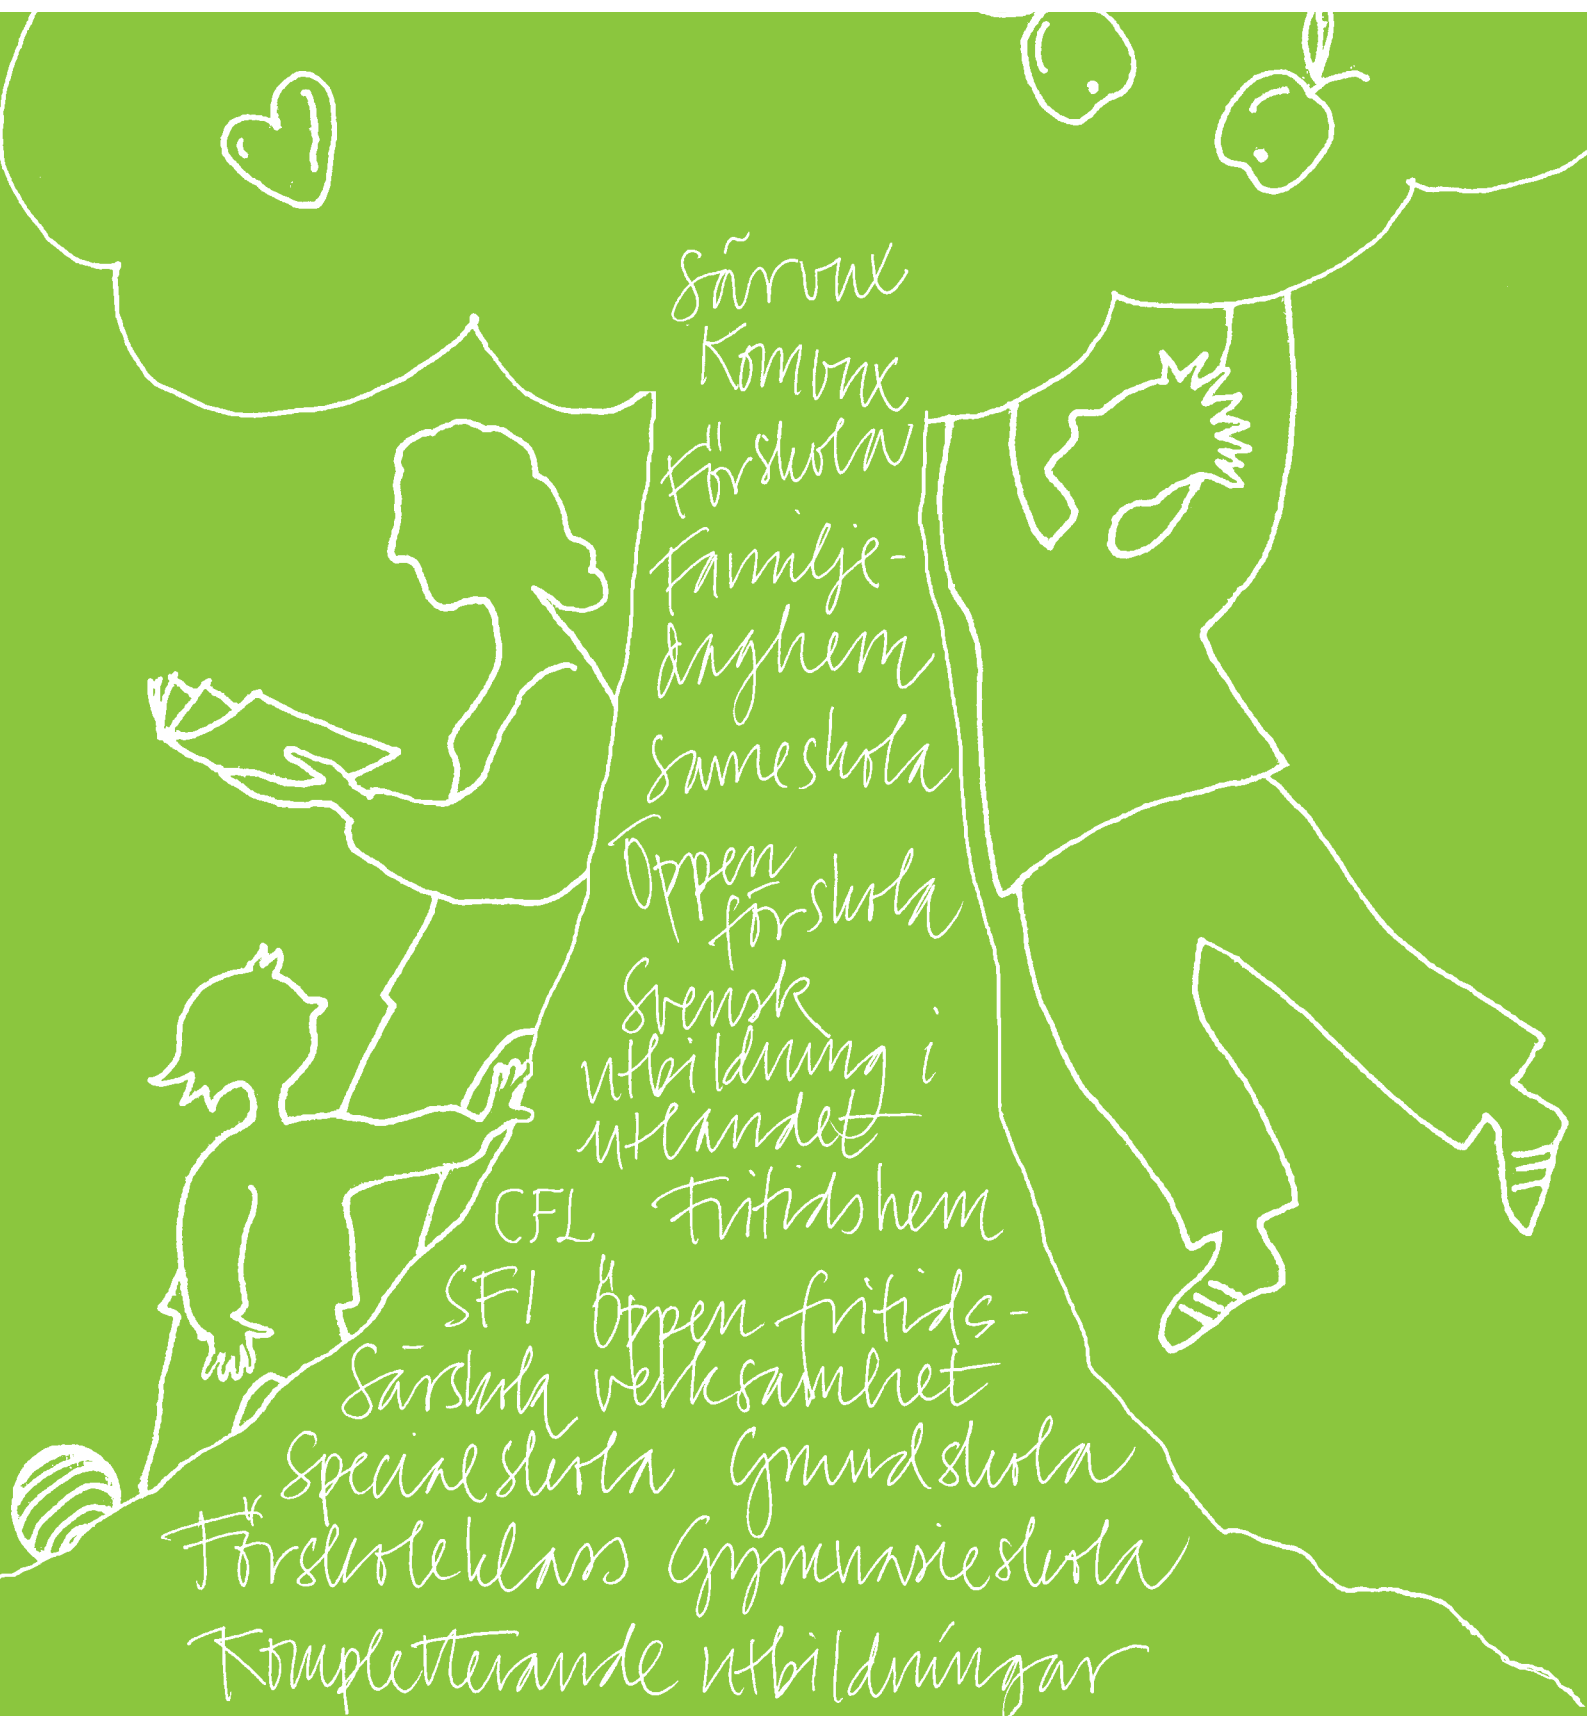 Särvux
Komvux
Förskola
Familje-
daghem
Sameskola
Öppen
förskola
Svensk
utbildning i
utlandet
CFL Fritidshem
SFI Öppen fritids-
Särskola verksamhet
Specialskola Grundskola
Förskoleklass Gymnasieskola
Kompletterande utbildningar